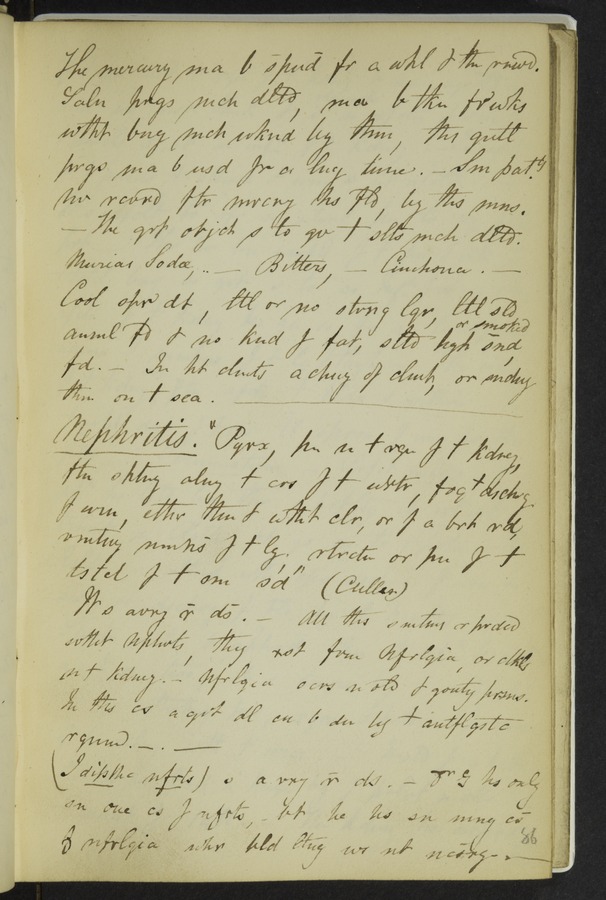 The mercury ma b spnd fr a whl & thn rnwd.
Saln prgs mch dltd, ma b thn fr wks
witht bng mch wknd by thm, ths gntl
prgs ma b usd fr a lng time. — Sm pat.ts
hv rcvrd ftr mrcry hs fld, by ths mns.
— The grt objct s to gv t slts mch dltd.
Murias Sodæ, .. — Bitters, — Cinchona. —
Cool opn dt, ttl or no strng lqr, ttl sld
or smoked
anml fd & no knd f fat, sltd hgh snd
fd. — In ht clmts a chng of clmt, or sndng
thm on t sea.
Nephritis. "Pyrx, pn n t rgn f t kdney,
ftn shtng alng t crs f t urtr, fqt dschrg
f urin, ethr thn & witht clr, or f a brt rd,
vmtng nmbns f t lg. rtrctn or pn f t
tstcl f t sm sd" (Cullen)
Ts a vry rr ds. — All ths smtms r prdcd
witht nphrts, they rst from Nfrlgia, or clkls
in t kidney. — Nfrlgia ocrs n old & gouty prsns.
In ths cs a grt dl cn b dn by t antflgstc
rgmn. — . —
(Idipthc nfrts) s a vry rr ds. — Dr G hs only
sn one cs f nfrts, — bt he hs sn mny cs
f nfrlgia whr bld ltng ws nt ncsry. —
86